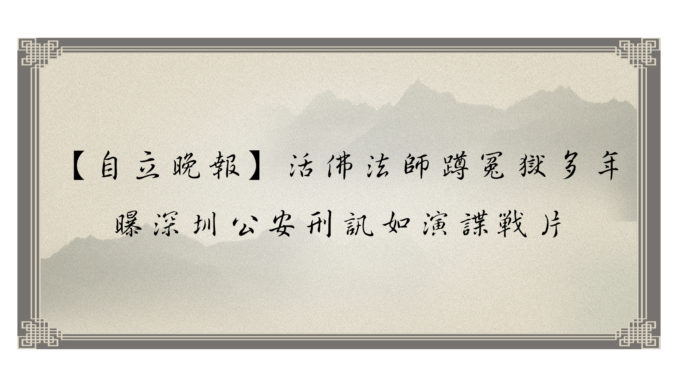 【自立晚報】活佛法師蹲冤獄多年
曝深圳公安刑訊如演諜戰片